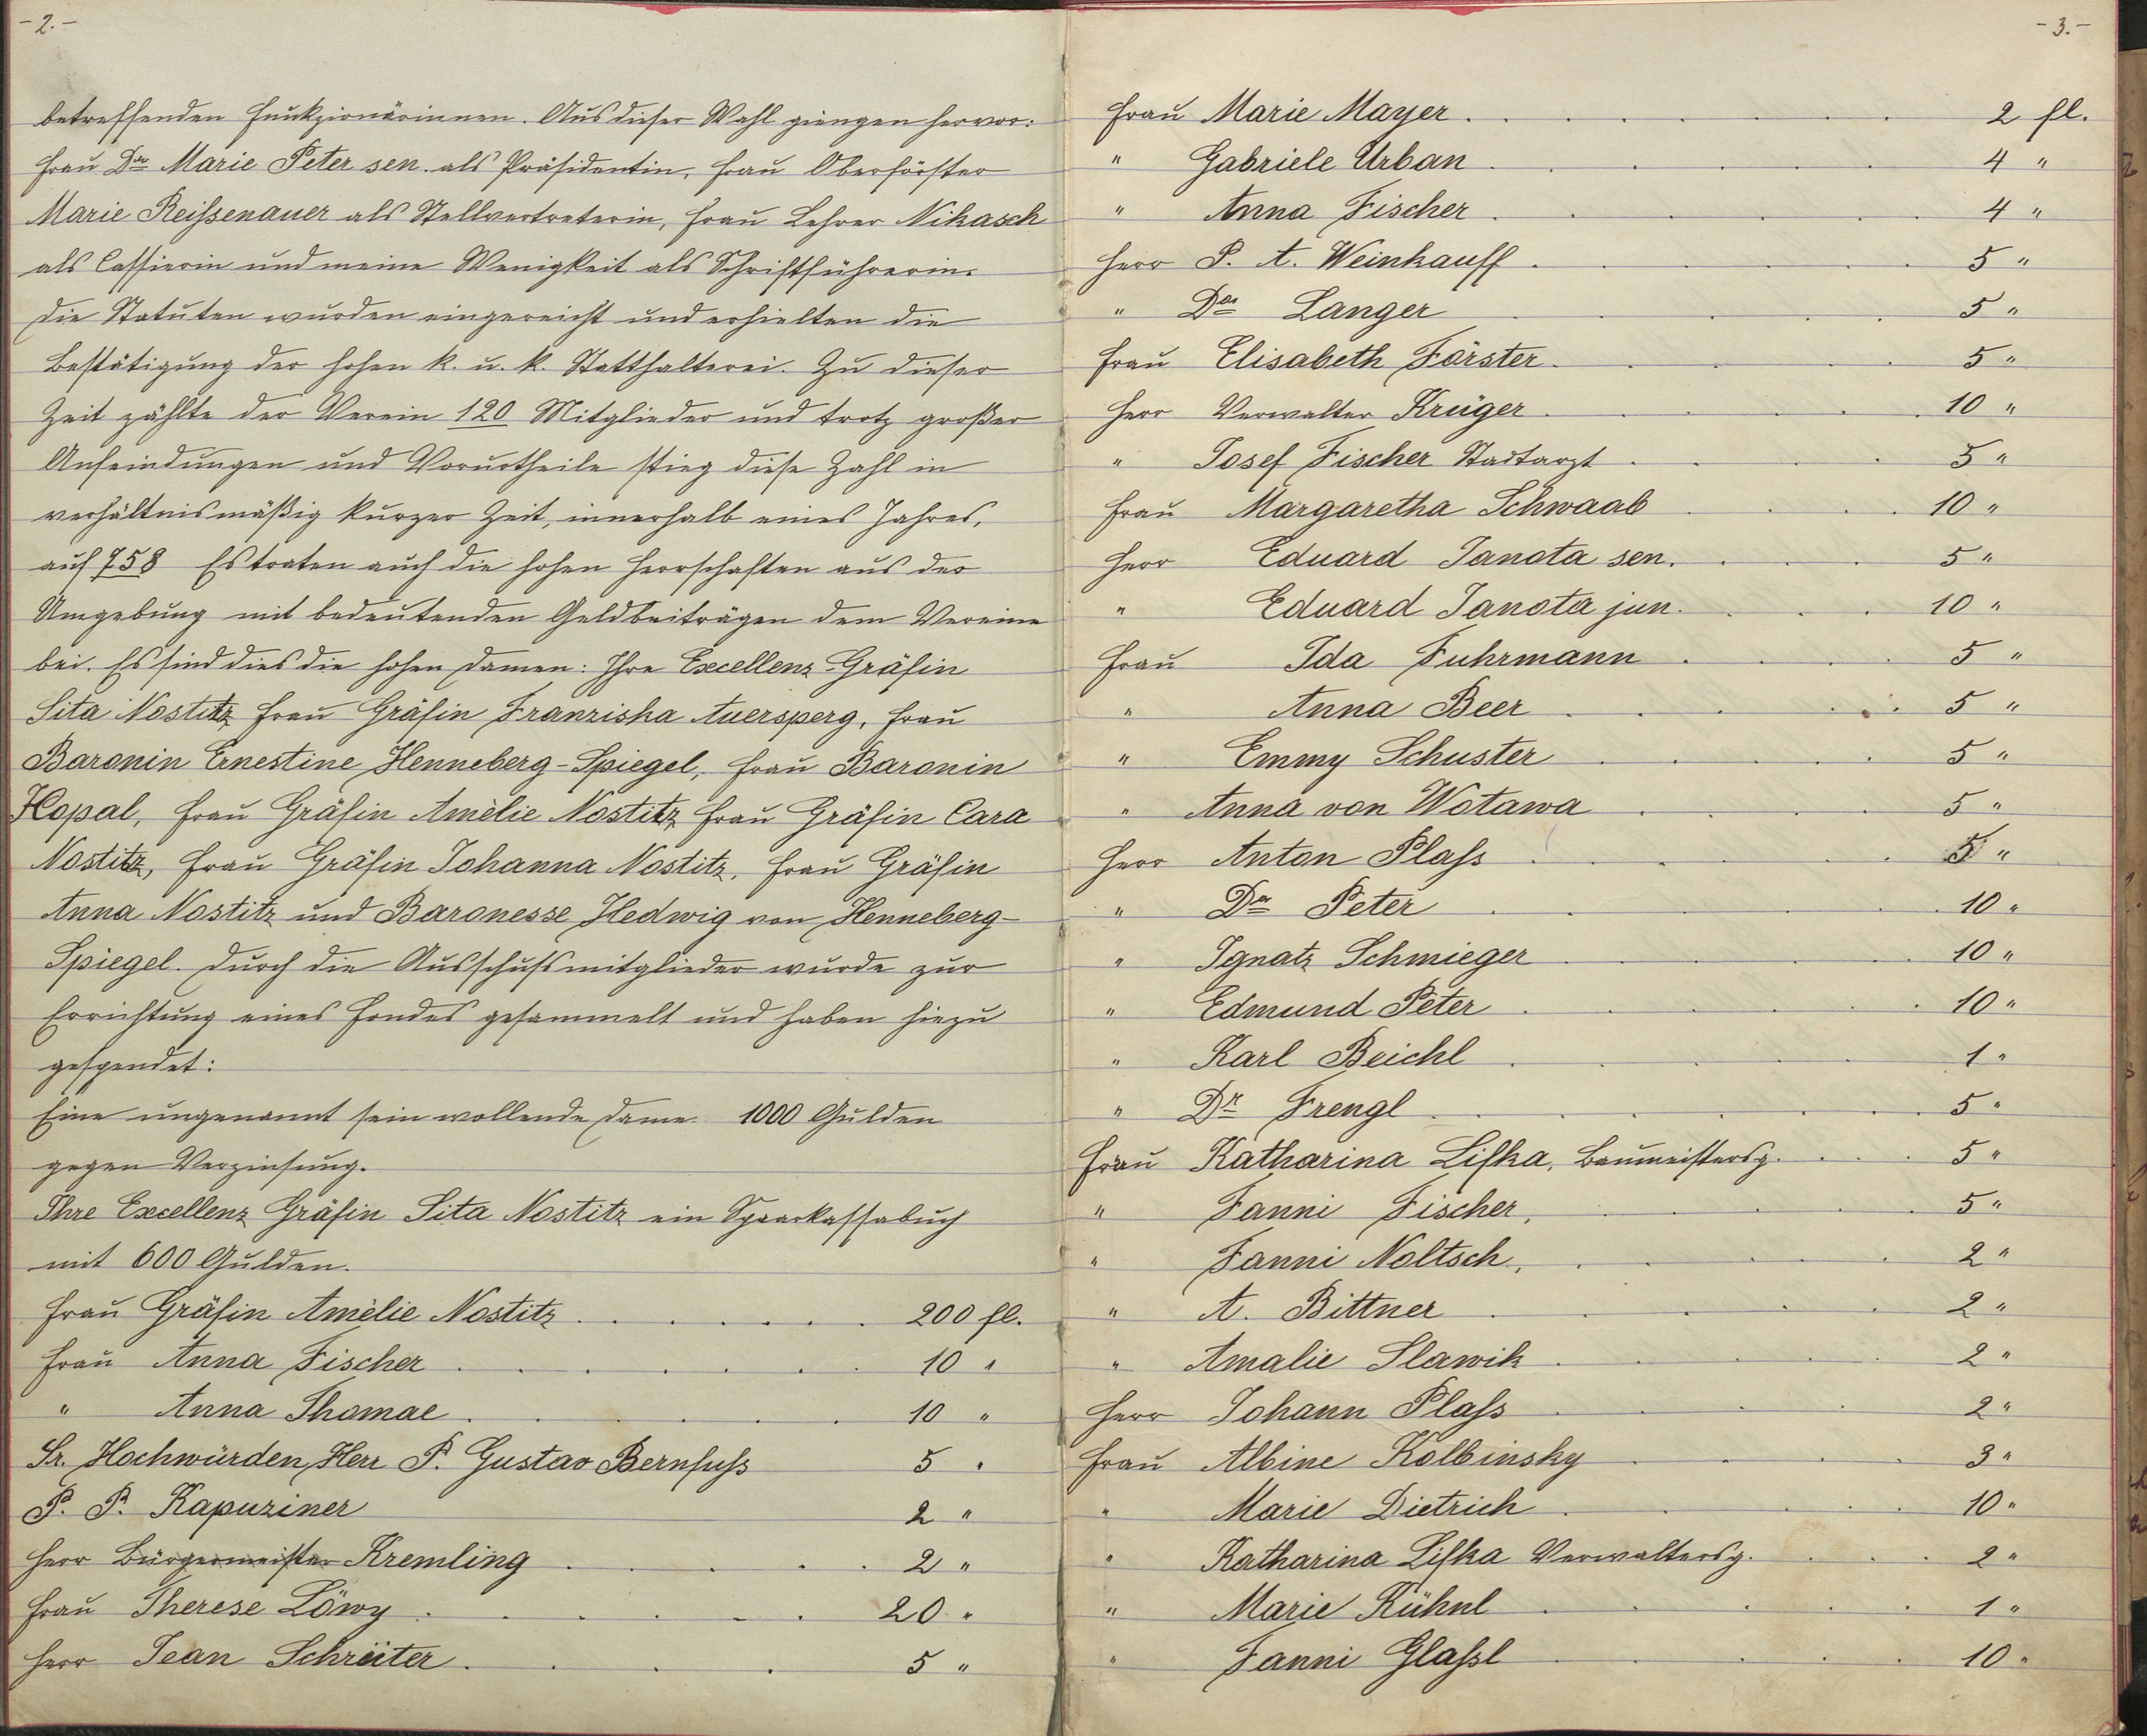 - 2. -
betreffenden Funkzionärinnen. Aus dieser Wahl giengen hervor:
Frau Dr Marie Peter sen. als Präsidentin, Frau Oberförster
Marie Reißenauer als Stellvertreterin, Frau Lehrer Nikasch
als Cassierin und meine Wenigkeit als Schriftführerin.
Die Statuten wurden eingereicht und erhielten die
Bestätigung der hohen k. u. k. Statthalterei. Zu dieser
Zeit zählte der Verein 120 Mitglieder und trotz großer
Anfeindungen und Vorurtheile stieg diese Zahl in
verhältnismäßig kurzer Zeit, innerhalb eines Jahres,
auf 758 Es traten auch die hohen Herrschaften aus der
Umgebung mit bedeutenden Geldbeiträgen dem Vereine
bei. Es sind dies die hohen Damen: Ihre Excellenz Gräfin
Sita Nostitz Frau Gräfin Franziska Auersperg, Frau
Baronin Ernestine Henneberg-Spiegel, Frau Baronin
Kopal, Frau Gräfin Amèlie Nostitz, Frau Gräfin Cara
Nostitz, Frau Gräfin Johanna Nostitz, Frau Gräfin
Anna Nostitz und Baronesse Hedwig von Henneberg-
Spiegel. Durch die Ausschußmitglieder wurde zur
Errichtung eines Fondes gesammelt und haben hiezu
gespendet:
Eine ungenannt sein wollende Dame. 1000 Gulden
gegen Verzinsung.
Ihre Excellenz Gräfin Sita Nostitz ein Sparkassabuch
mit 600 Gulden.
Frau Gräfin Amèlie Nostitz . . . . . . 200 fl.
Frau Anna Fischer . . . . . . 10 "
" Anna Thomae . . . . . . 10 "
Sr. Hochwürden Herr P. Gustav Bernfuß 5 "
P. P. Kapuziner 2 "
Herr Bürgermeister Kremling . . . . . 2 "
Frau Therese Löwy . . . . . . 20 "
Herr Jean Schreiter . . . . 5 "
- 3. -
Frau Marie Mayer . . . . . . 2 fl.
" Gabriele Urban . . . . . . 4 "
" Anna Fischer . . . . . . 4 "
Herr P. A. Weinkauff . . . . . . 5 "
" Dr Langer . . . . . 5 "
Frau Elisabeth Förster . . . . . 5 "
Herr Verwalter Krüger . . . . . 10 "
" Josef Fischer Stadtarzt . . . . 5 "
Frau Margaretha Schwaab . . . . 10 "
Herr Eduard Janota sen. . . . 5 "
" Eduard Janota jun. . . . 10 "
Frau Ida Fuhrmann . . . . 5 "
" Anna Beer . . . . . 5 "
" Emmy Schuster . . . . . 5 "
" Anna von Wotawa . . . . 5 "
Herr Anton Plaß . . . . . . 5 "
" Dr Peter . . . . . . 10 "
" Ignatz Schmieger . . . . . . 10 "
" Edmund Peter . . . . . . 10 "
" Karl Beichl . . . . . 1 "
" Dr Frengl . . . . . . 5 "
Frau Katharina Lifka, Baumeistersg. . . . 5 "
" Fanni Fischer, . . . . . 5 "
" Fanni Noltsch, . . . . . 2 "
" A. Bittner . . . . . 2 "
" Amalie Slawik . . . . . 2 "
Herr Johann Plaß . . . . 2 "
Frau Albine Kolbinsky . . . . 3 "
" Marie Dietrich . . . . . 10 "
" Katharina Lifka Verwaltersg. . . . 2 "
" Marie Kühnl . . . . . 1 "
" Fanni Glaßl . . . . . 10 "